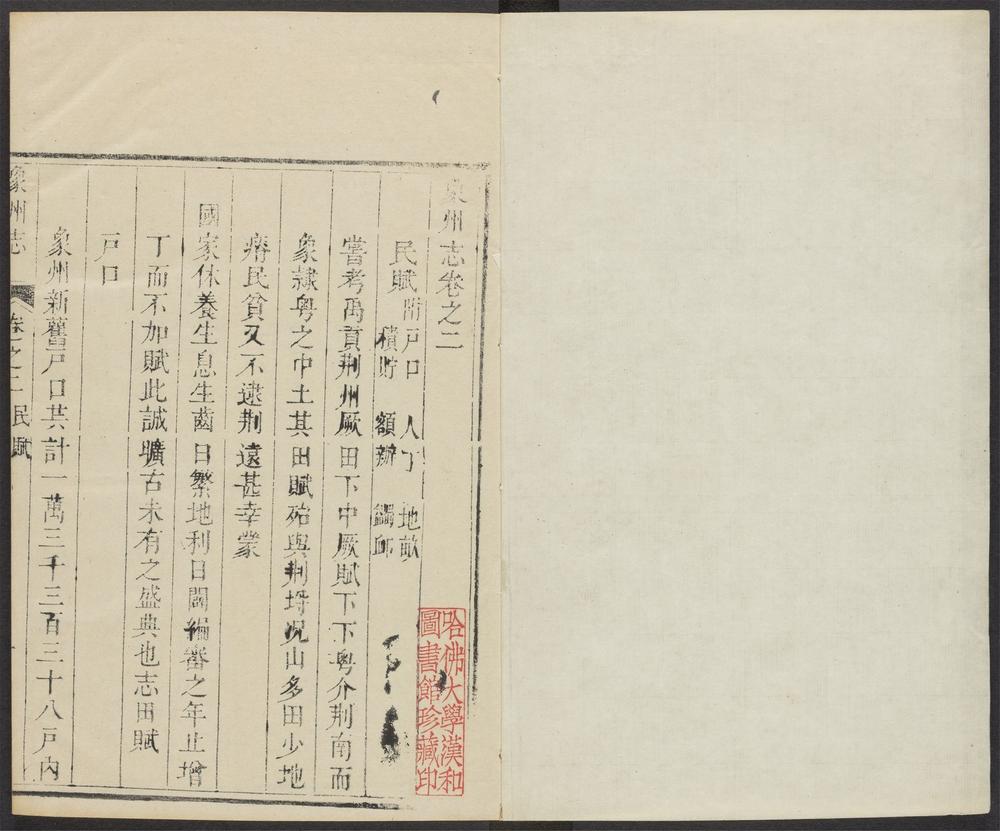 象州志卷之二
民賦 附戶口 人丁 地畝
積貯 額辦 蠲卹
嘗考禹貢荆州厥田下中厥賦下下粵介荆南而
象隸粵之中土其田賦殆與荆埒况山多田少地
瘠民貧又不逮荆遠甚幸蒙
國家休養生息生齒日繁地利日闢編審之年止增
丁而不加賦此誠曠古未有之盛典也志田賦
戶口
象州新舊戶口共計一萬三千三百三十八戶內
象州志 卷之二 民賦
哈佛大學漢和
圖書館珍藏印